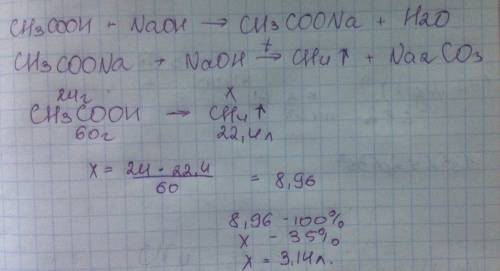 CH3COOH + NaOH → CH3COONa + H2O
CH3COONa + NaOH t→ CH4↑ + Na2CO3
24г x
CH3COOH → CH4↑
60г 22,4л
x = 24 · 22,4 / 60 = 8,96
8,96 - 100%
x - 35%
x = 3,14л.